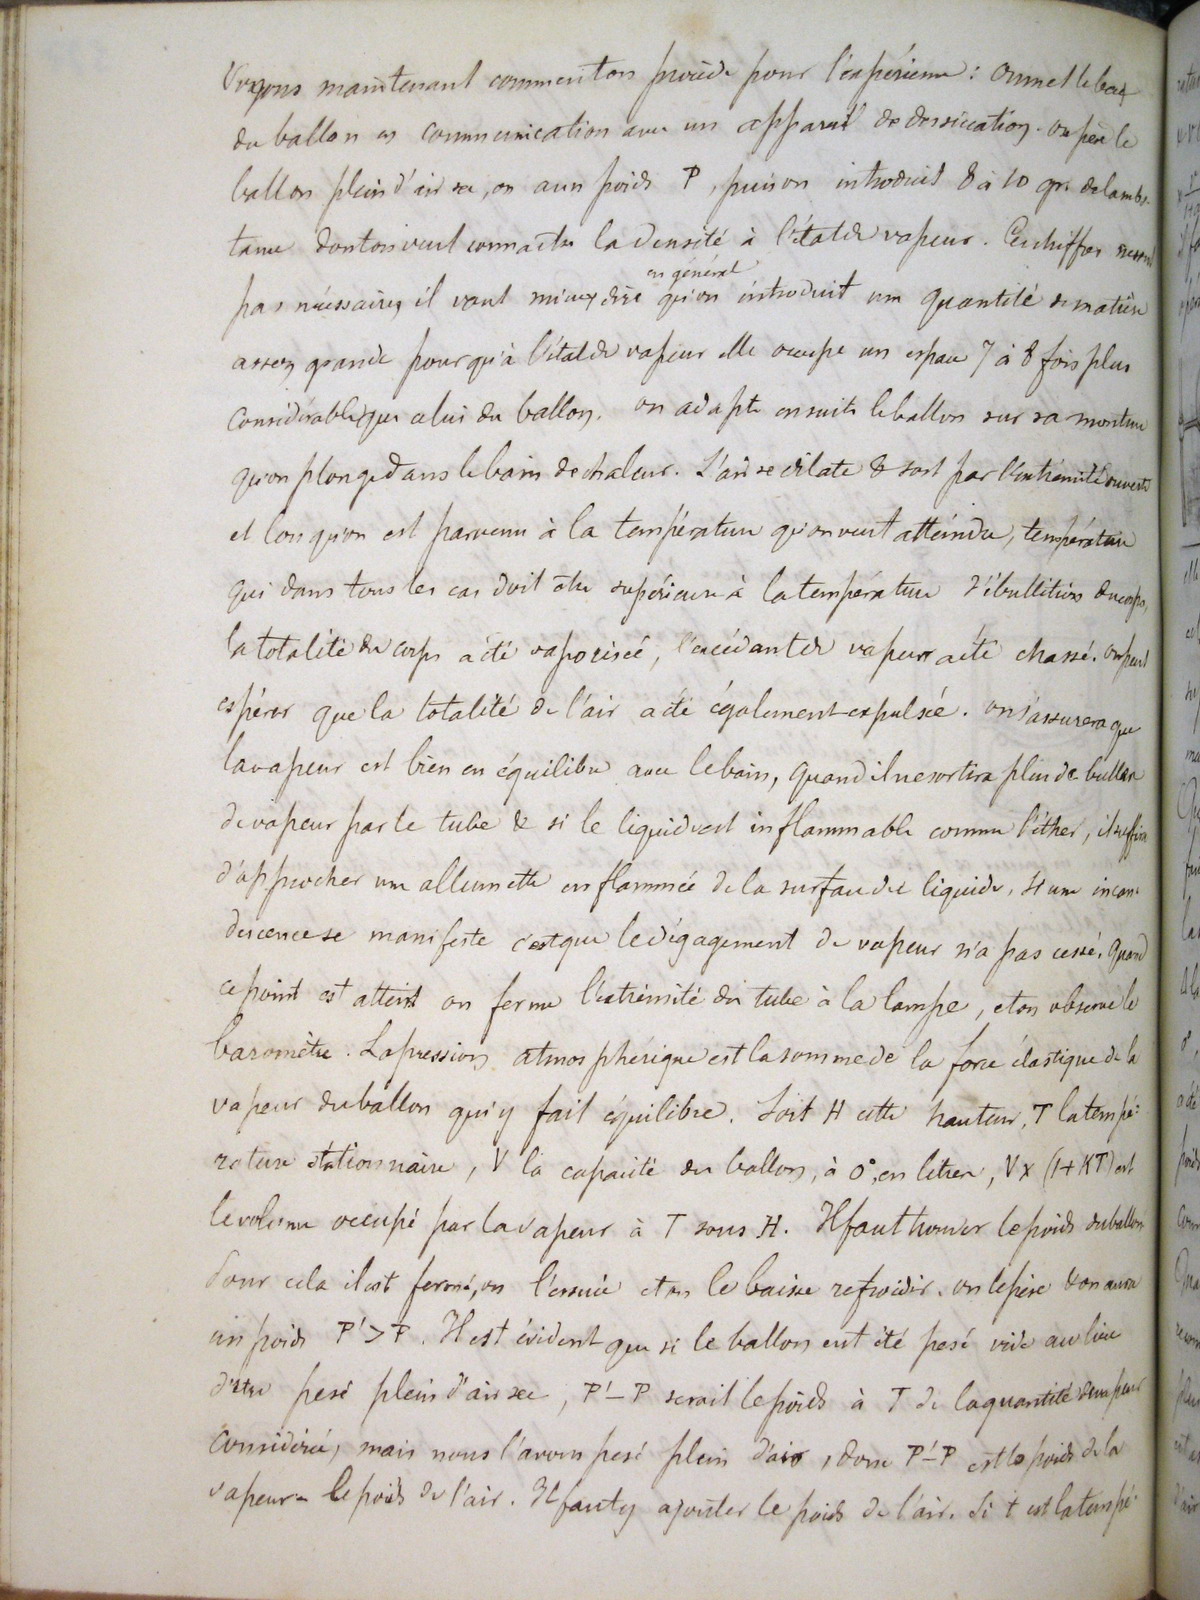 Voyons maintenant comment on procède pour l'expérience : on met le bec
du ballon en communication avec un appareil de dessiccation. on pèse le
ballon plein d'air sec, on a un poids P, puis on introduit 8 à 10 gr. de la subs-
tance dont on veut connaître la densité à l'état de vapeur. Ces chiffres ne sont
pas nécessaires il vaut mieux dire qu'on en général introduit une quantité de matière
assez grande pour qu'à l'état de vapeur elle occupe un espace 7 à 8 fois plus
considérable que celui du ballon. on adapte ensuite le ballon sur sa monture
qu'on plonge dans le bain de chaleur. L'air se dilate & sort par l'extrémité ouverte
et lorsqu'on est parvenu à la température qu'on veut atteindre, température
qui dans tous les cas doit être supérieure à la température d'ébullition du corps,
la totalité du corps a été vaporisée, l'excédant de vapeur a été chassé. on peut
espérer que la totalité de l'air a été également expulsée. on s'assurera que
la vapeur est bien en équilibre avec le bain, quand il ne sortira plus de bulles
de vapeur par le tube & si le liquide est inflammable comme l'éther, il suffira
d'approcher une allumette enflammée de la surface du liquide. Si une incan-
descence se manifeste c'est que le dégagement de vapeur n'a pas cessé. Quand
ce point est atteint on ferme l'extrémité du tube à la lampe, et on observe le
baromètre. La pression atmosphérique est la somme de la force élastique de la
vapeur du ballon qui y fait équilibre. Soit H cette hauteur, T la tempé-
rature stationnaire, V la capacité du ballon, à 0°, en litres, V x (1+KT) est
le volume occupé par la vapeur à T sous H. Il faut trouver le poids du ballon
Pour cela il est fermé, on l'essuie et on le laisse refroidir. on le pèse & on aura
un poids P' > P. Il est évident que si le ballon eut été pesé vide au lieu
d'être pesé plein d'air sec, P' — P serait le poids à T de la quantité de vapeur
considérée, mais nous l'avons pesé plein d'air, donc P' — P est le poids de la
vapeur - le poids de l'air. Il faut y ajouter le poids de l'air. Si t est la tempé-